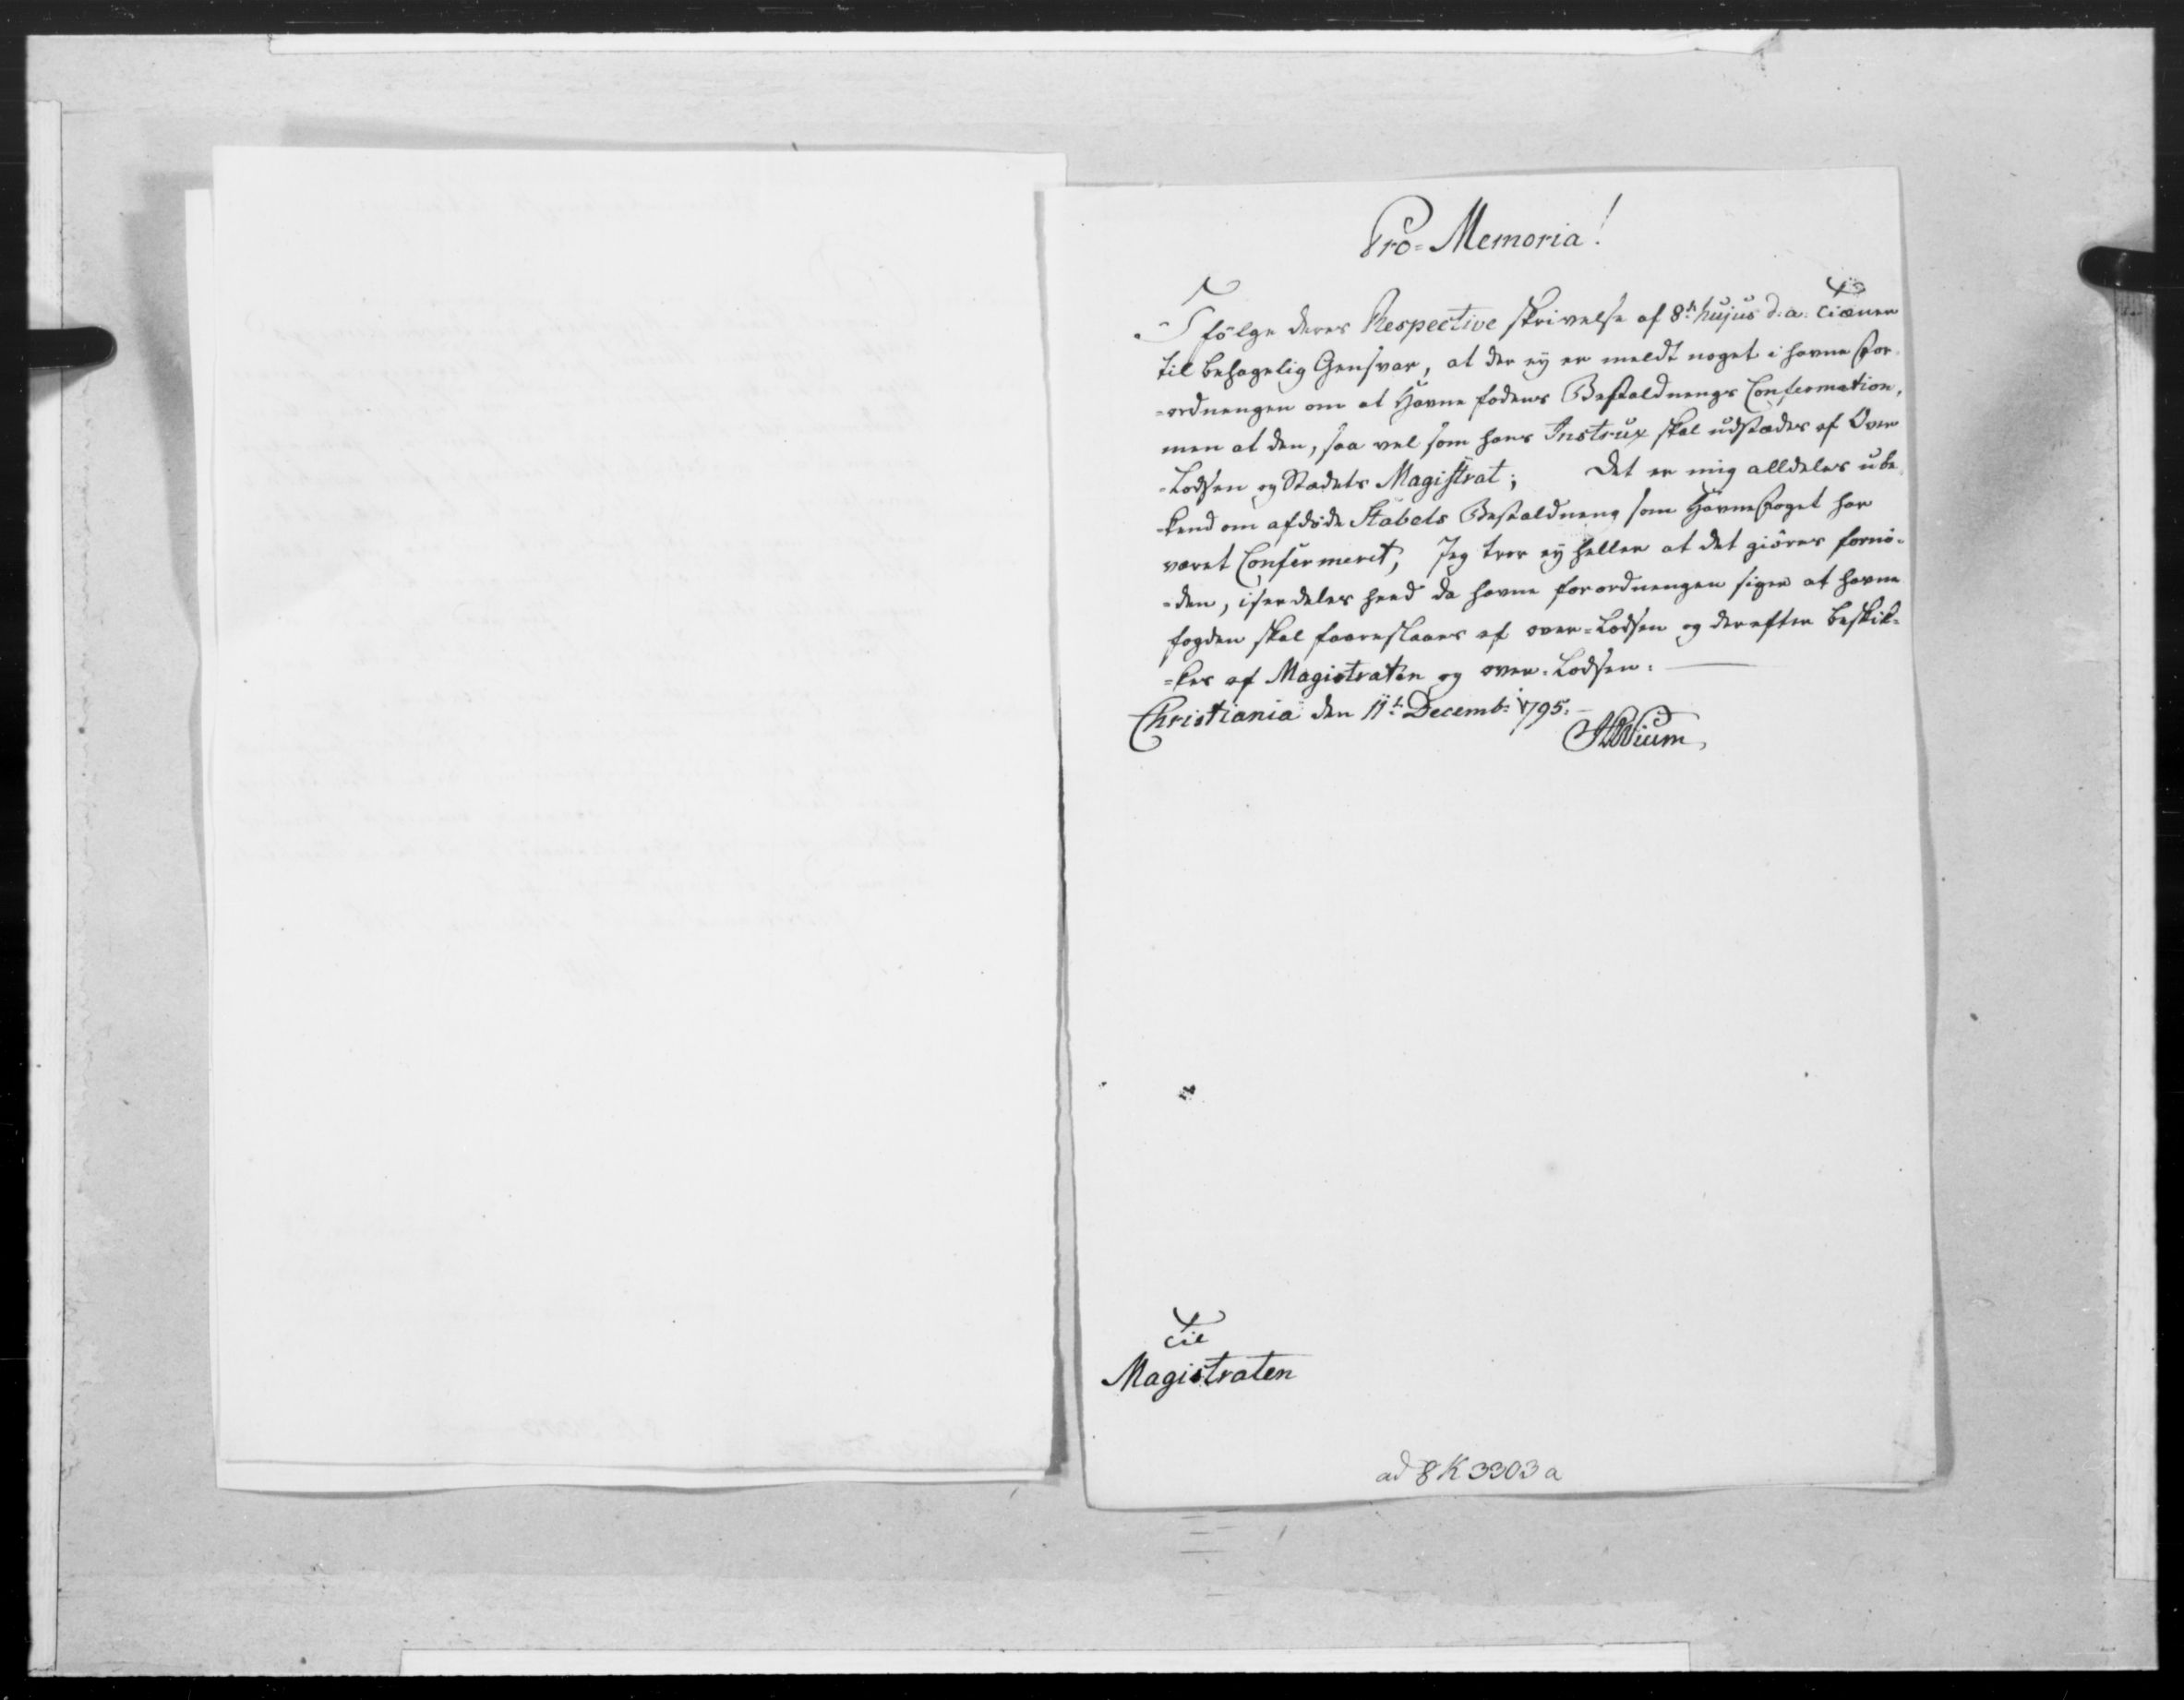 Pro-Memoria!
I følge deres Respective skrivelse af 8.de hujus d. a. tiæner
til behagelig Gensvar, at der ey er meldt noget i havne for-
=ordnengen om at Havne fodens Bestaldnengs Confermation,
men at den, saa vel som hans Instrux skal udstædes af Over
=Lodsen og Stædets Magistrat; Det er mig alldeles ube-
kend om afdøde Stabels Bestaldneng som Havnefoget har
været Confermeret, Jeg troer ey heller at det giøres fornø-
=den, iserdeles heed da havne forordnengen siger at havne
fogden skal faareslaaes af over=Lodsen og derefter beskik-
=kes af Magistraten og over-Lodsen.
Christiania den 11te Decemb: 1795.
Wium
Til
Magistraten
ad 8 K 3303 a